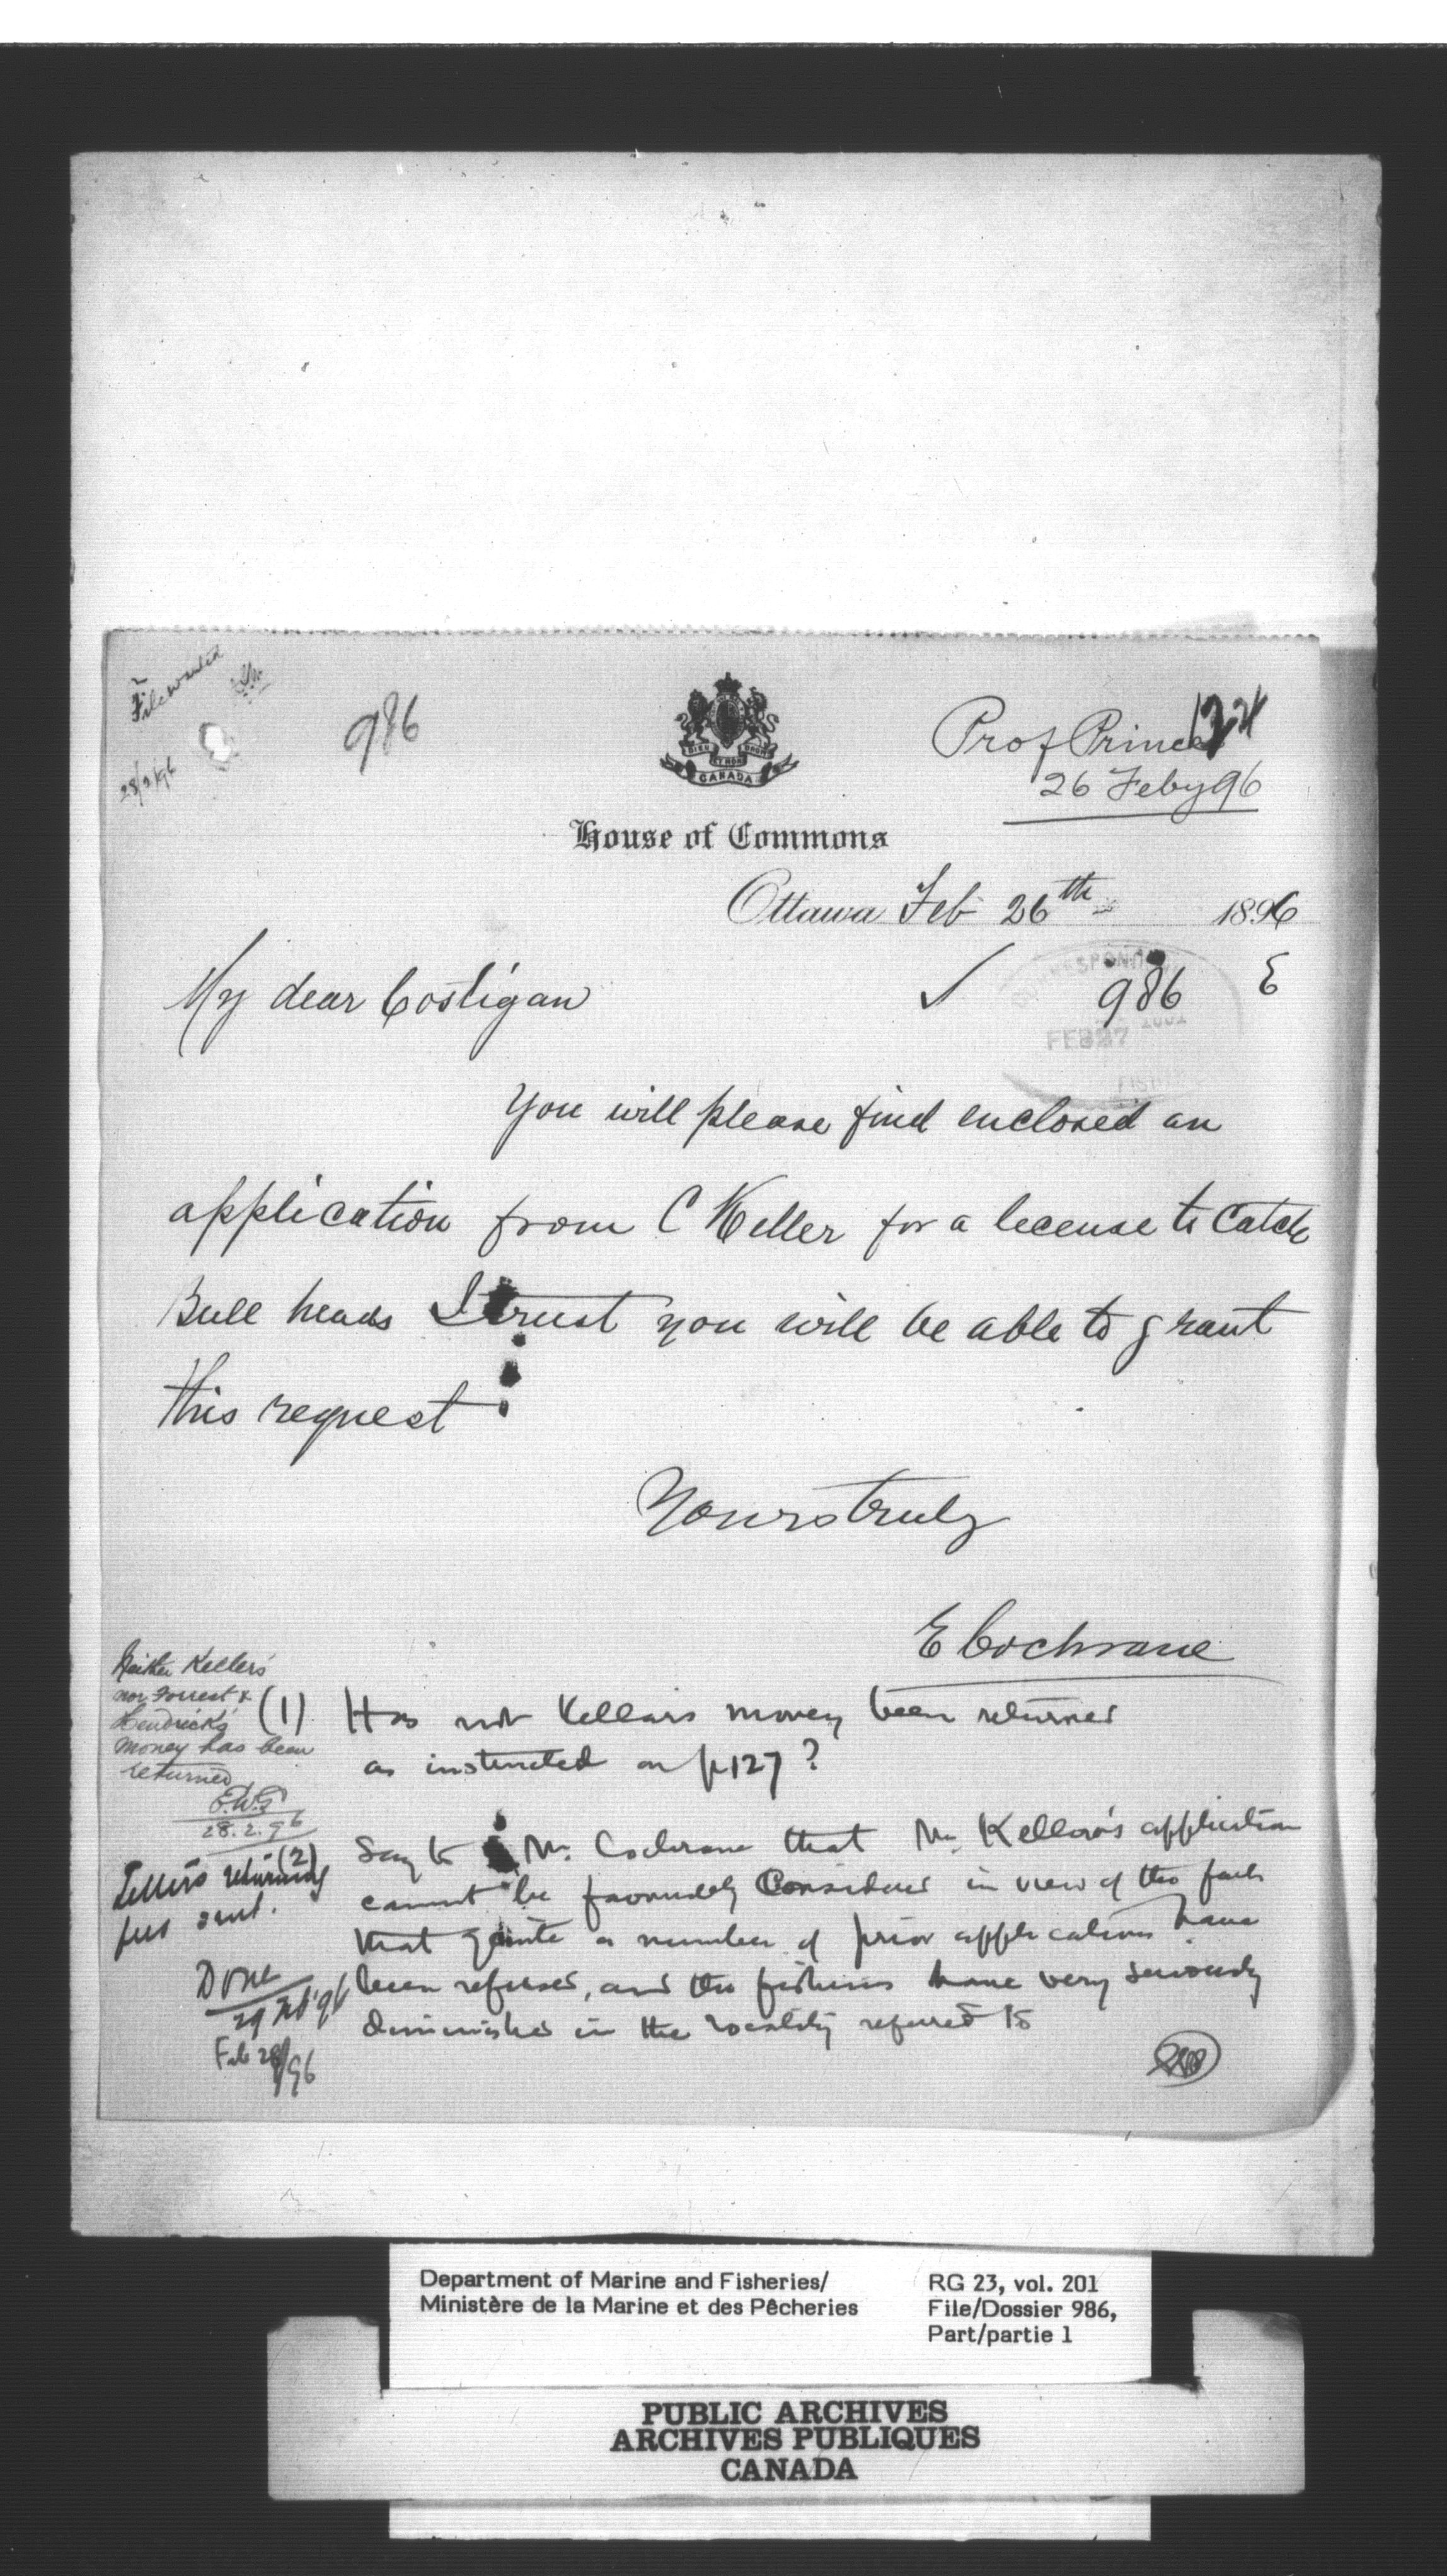 File wanted
28/2/96
986
Prof Prince
26 Feby 96
DIEU ET MON DROIT
CANADA
House of Commons
Ottawa Feb 26th 1896
My dear Costigan
986
FEB 27
E
You will please find enclosed an
application from C Keller for a license to catch
Bull heads I trust you will be able to grant
this request
Yours truly
E Cochrane
Neither Kellers
nor Forrest &
Hendricks
money has been
returned
E.W.G
28.2.96
(1) Has not Kellars money been returned
as instructed on p 127?
(2) Say to Mr. Cochrane that Mr Kellar's application
cannot be favourably Considered in view of the fact
that quite a number of prior applications have
been refused, and the fisheries have very seriously
diminished in the locality referred to
Letters returning
fees sent.
Done
29 Feb '96
Feb 28/96
Department of Marine and Fisheries/
Ministère de la Marine et des Pêcheries
RG 23, vol. 201
File/Dossier 986,
Part/partie 1
PUBLIC ARCHIVES
ARCHIVES PUBLIQUES
CANADA